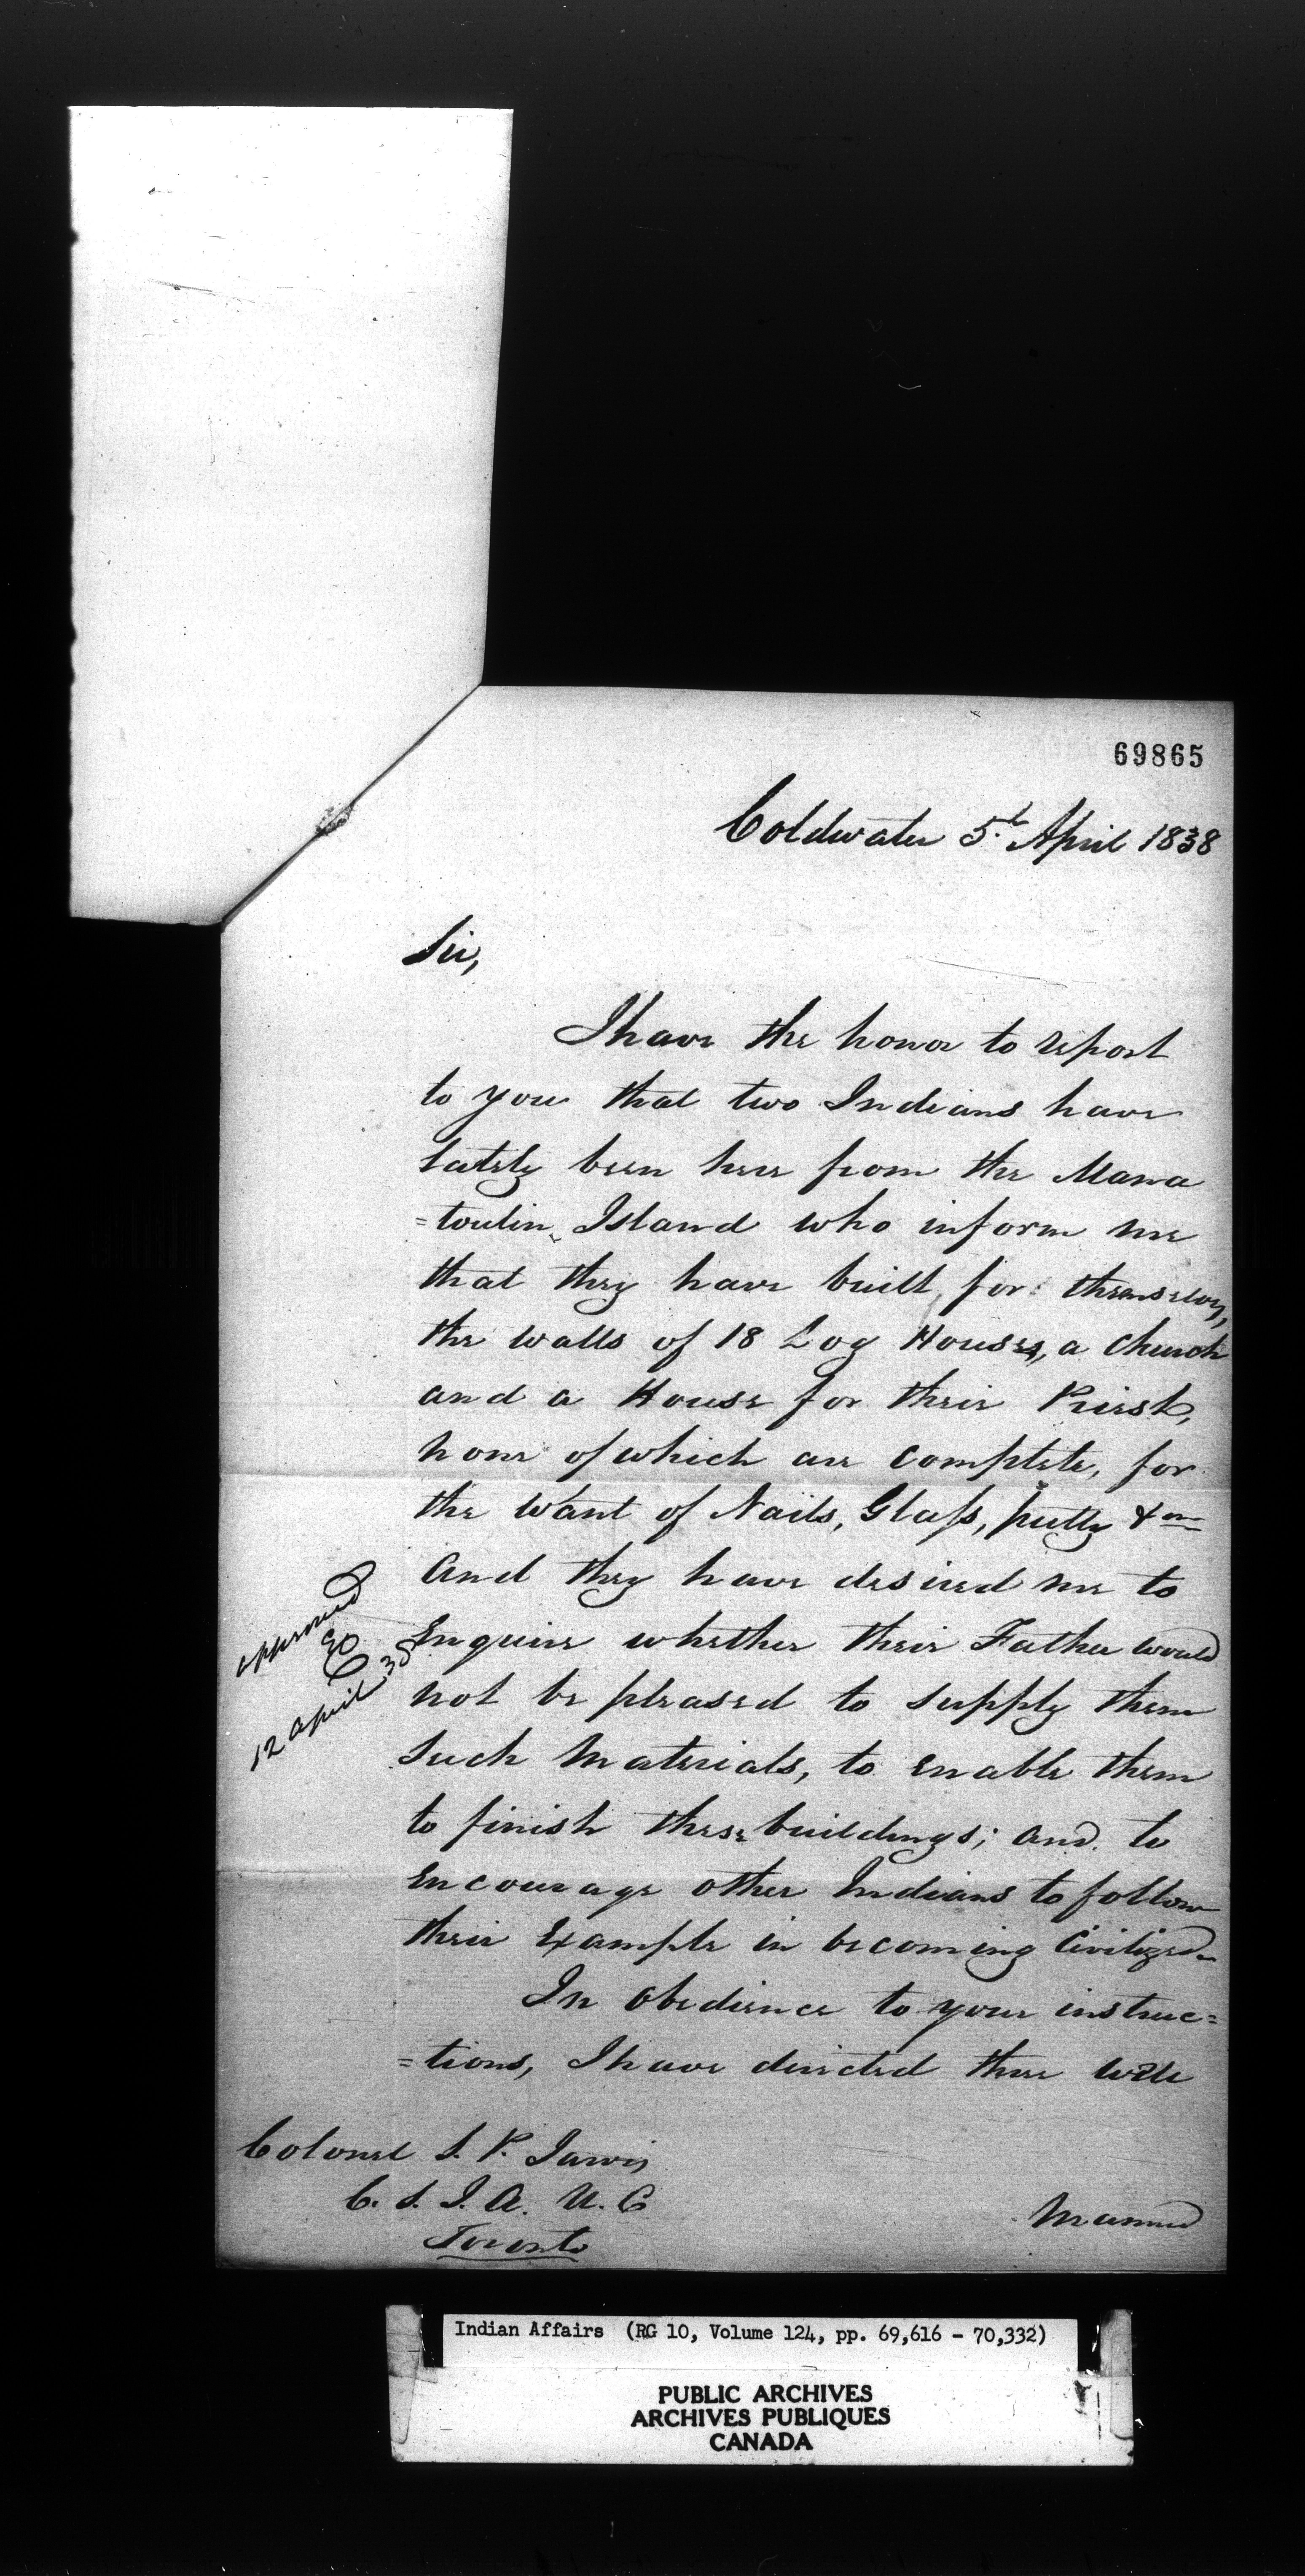 69865
Coldwater 5th April 1838
Sir,
I have the honor to report
to you that two Indians have
lately been here from the Mana
=toulin Island who inform me
that they have built, for themselves,
the walls of 18 Log Houses, a Church
and a House for their Priest,
none of which are complete, for
the want of Nails, Glass, putty &c
And they have desired me to
Enquire whether their Father would
not be pleased to supply them
such Materials, to enable them
to finish these buildings; and to
encourage other Indians to follow
their Example in becoming Civilized
In obedience to your instruc=
=tions, I have directed three well
approved
12 April 38
Colonel S. P. Jarvis
C. S. I. A. U. C
Toronto
Manned
Indian Affairs (RG 10, Volume 124, pp. 69,616 - 70,332)
PUBLIC ARCHIVES
ARCHIVES PUBLIQUES
CANADA